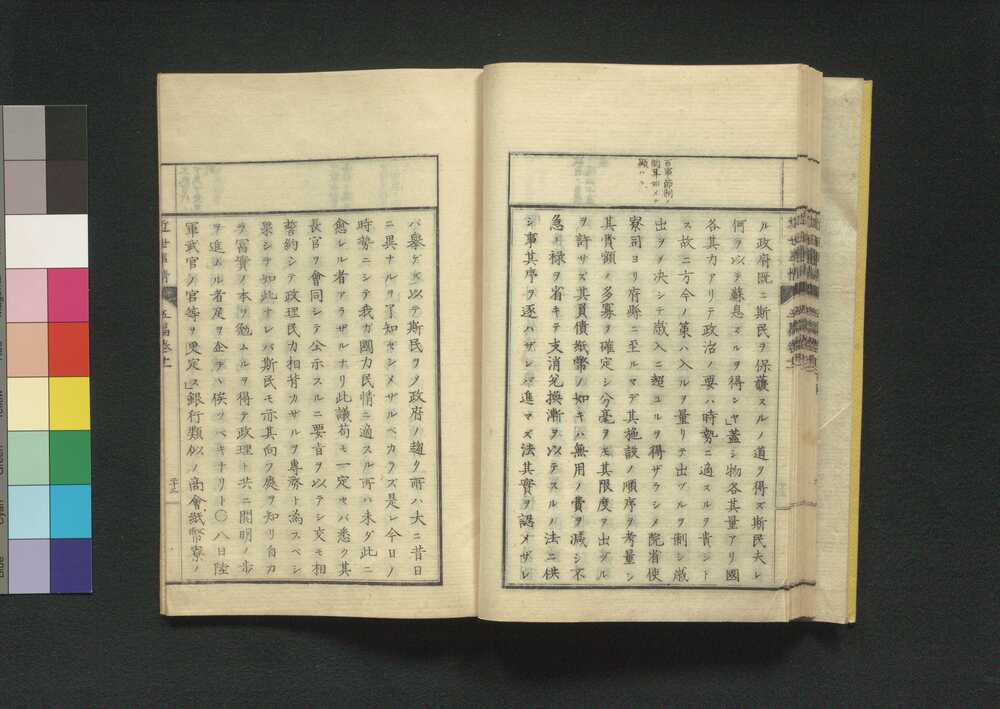 百事節制ノ
ル政府既ニ斯民ヲ保護スルノ道ヲ得ズ斯民夫レ
何ヲ以テ蘇息スルヲ得ンヤ」蓋シ物各其量アリ國
各其力アリテ政治ノ要ハ時勢ニ適スルヲ貴ジト
ス故ニ方今ノ策ハ入ルヲ量リテ出ヅルヲ制シ歳
出ヲ決シテ歳入ニ超ユルヲ得ザラシメ院省使
寮司ヨリ府縣ニ至ルマデ其施設ノ順序ヲ考量シ
其費額ノ多寡ヲ確定シ分毫ヲモ其限度ヲ出ヅル
ヲ許サズ其負債紙幣ノ如キハ無用ノ費ヲ減シ不
急ノ祿ヲ省キテ支消兌換漸ヲ以テスルハ法ニ供
シ事其序ヲ逐ハザレバ進マズ法其實ヲ認メザレ
バ擧ゲズ以テ斯民ヲシテ政府ノ趨ク所ハ大ニ昔日
ニ異ナルヲ了知セシメザルベカラズ是レ今日ノ
時勢ニシテ我ガ國力民情ニ適スル所ハ未ダ此ニ
愈レル者アラザルナリ此議苟モ一定セバ悉ク其
長官ヲ會同シテ公示スルニ要旨ヲ以テシ交モ相
誓約シテ政理民力相背カサルヲ專務ト為スベシ
果シテ如此ナレバ斯民モ亦其向フ處ヲ知リ自カ
ラ富實ノ本ヲ勉ムルヲ得テ政理ト共ニ開明ノ歩
ヲ進ムル者足ヲ企テヽ俟ツベキナリト〇八日陸
軍武官ノ官等ヲ更定ス」銀行類似ノ商會紙幣寮ノ
近世事情 五編卷十一